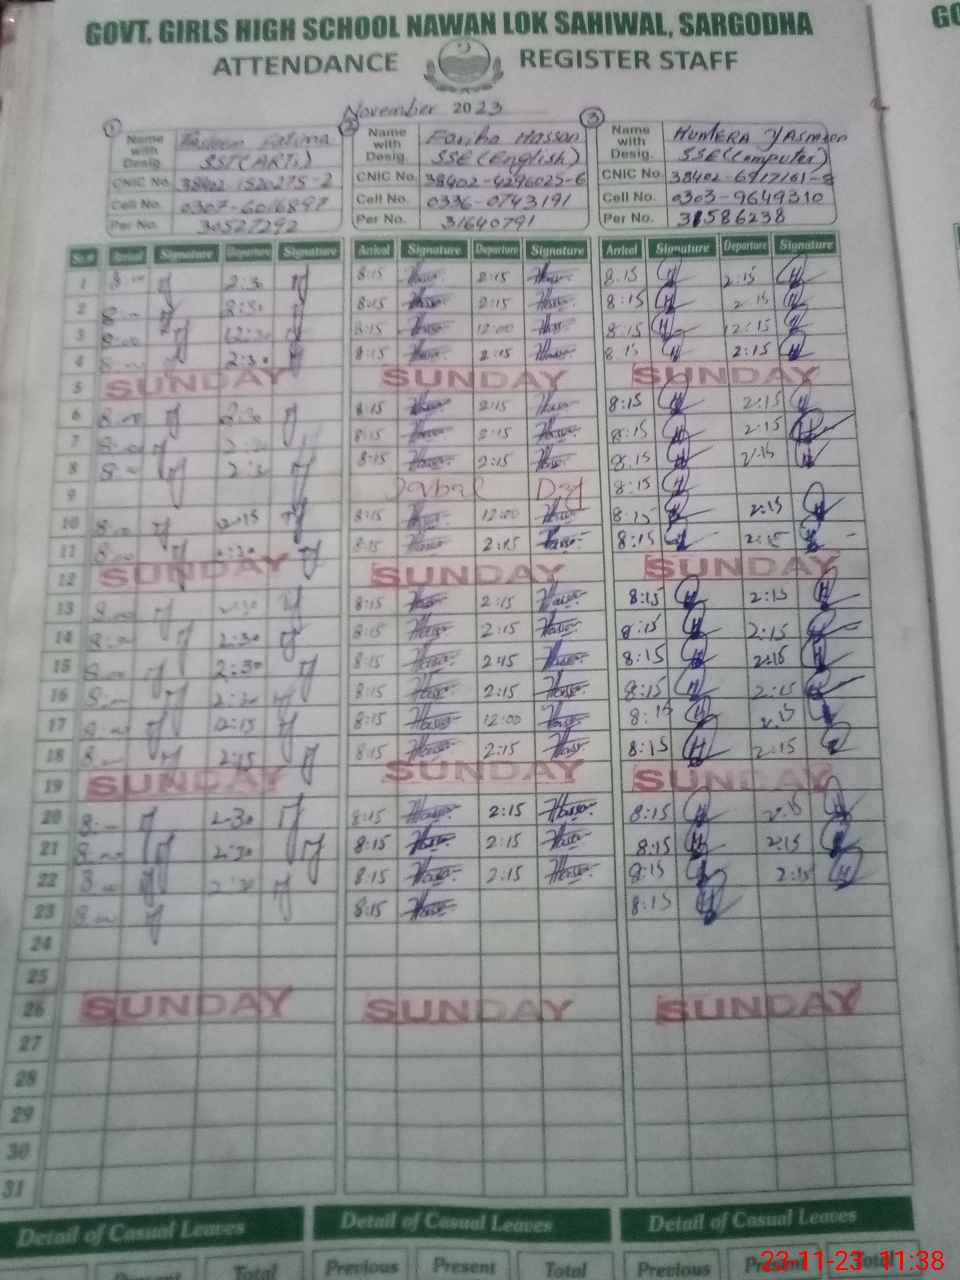 GOVT. GIRLS HIGH SCHOOL NAWAN LOK SAHIWAL, SARGODHA
ATTENDANCE REGISTER STAFF
November 2023
1 2 3
Name with Desig. Fatima SST(ARTS) Name with Desig. Fariha Hassan SSE(English) Name with Desig. HUMERA YASMEEN SSE(Computer)
CNIC No. 38402 1520275-2 CNIC No. 38402-4296025-6 CNIC No. 38402-6917161-8
Cell No. 0307-6016897 Cell No. 0336-0743191 Cell No. 0303-9649310
Per No. 30527292 Per No. 31640791 Per No. 31586238
Sr.# Arrival Signature Departure Signature Arrival Signature Departure Signature Arrival Signature Departure Signature
1 8:00 2:30 8:15 2:15 8:15 2:15
2 8:00 2:30 8:15 2:15 8:15 2:15
3 8:00 12:30 8:15 12:00 8:15 12:15
4 8:00 2:30 8:15 2:15 8:15 2:15
5 SUNDAY SUNDAY SUNDAY
6 8:00 2:30 8:15 2:15 8:15 2:15
7 8:00 2:30 8:15 2:15 8:15 2:15
8 8:00 2:30 8:15 2:15 8:15 2:15
9 Iqbal Day 8:15
10 8:00 2:15 8:15 12:00 8:15 2:15
11 8:00 2:30 8:15 2:15 8:15 2:15
12 SUNDAY SUNDAY SUNDAY
13 8:00 2:30 8:15 2:15 8:15 2:15
14 8:00 2:30 8:15 2:15 8:15 2:15
15 8:00 2:30 8:15 2:15 8:15 2:15
16 8:00 2:30 8:15 2:15 8:15 2:15
17 8:00 12:15 8:15 12:00 8:15 2:15
18 8:00 2:15 8:15 2:15 8:15 2:15
19 SUNDAY SUNDAY SUNDAY
20 8:00 2:30 8:15 2:15 8:15 2:15
21 8:00 2:30 8:15 2:15 8:15 2:15
22 8:00 2:30 8:15 2:15 8:15 2:15
23 8:00 8:15 8:15
24
25
26 SUNDAY SUNDAY SUNDAY
27
28
29
30
31
Detail of Casual Leaves Detail of Casual Leaves Detail of Casual Leaves
Present Total Previous Present Total Previous Present Total
23-11-23 11:38